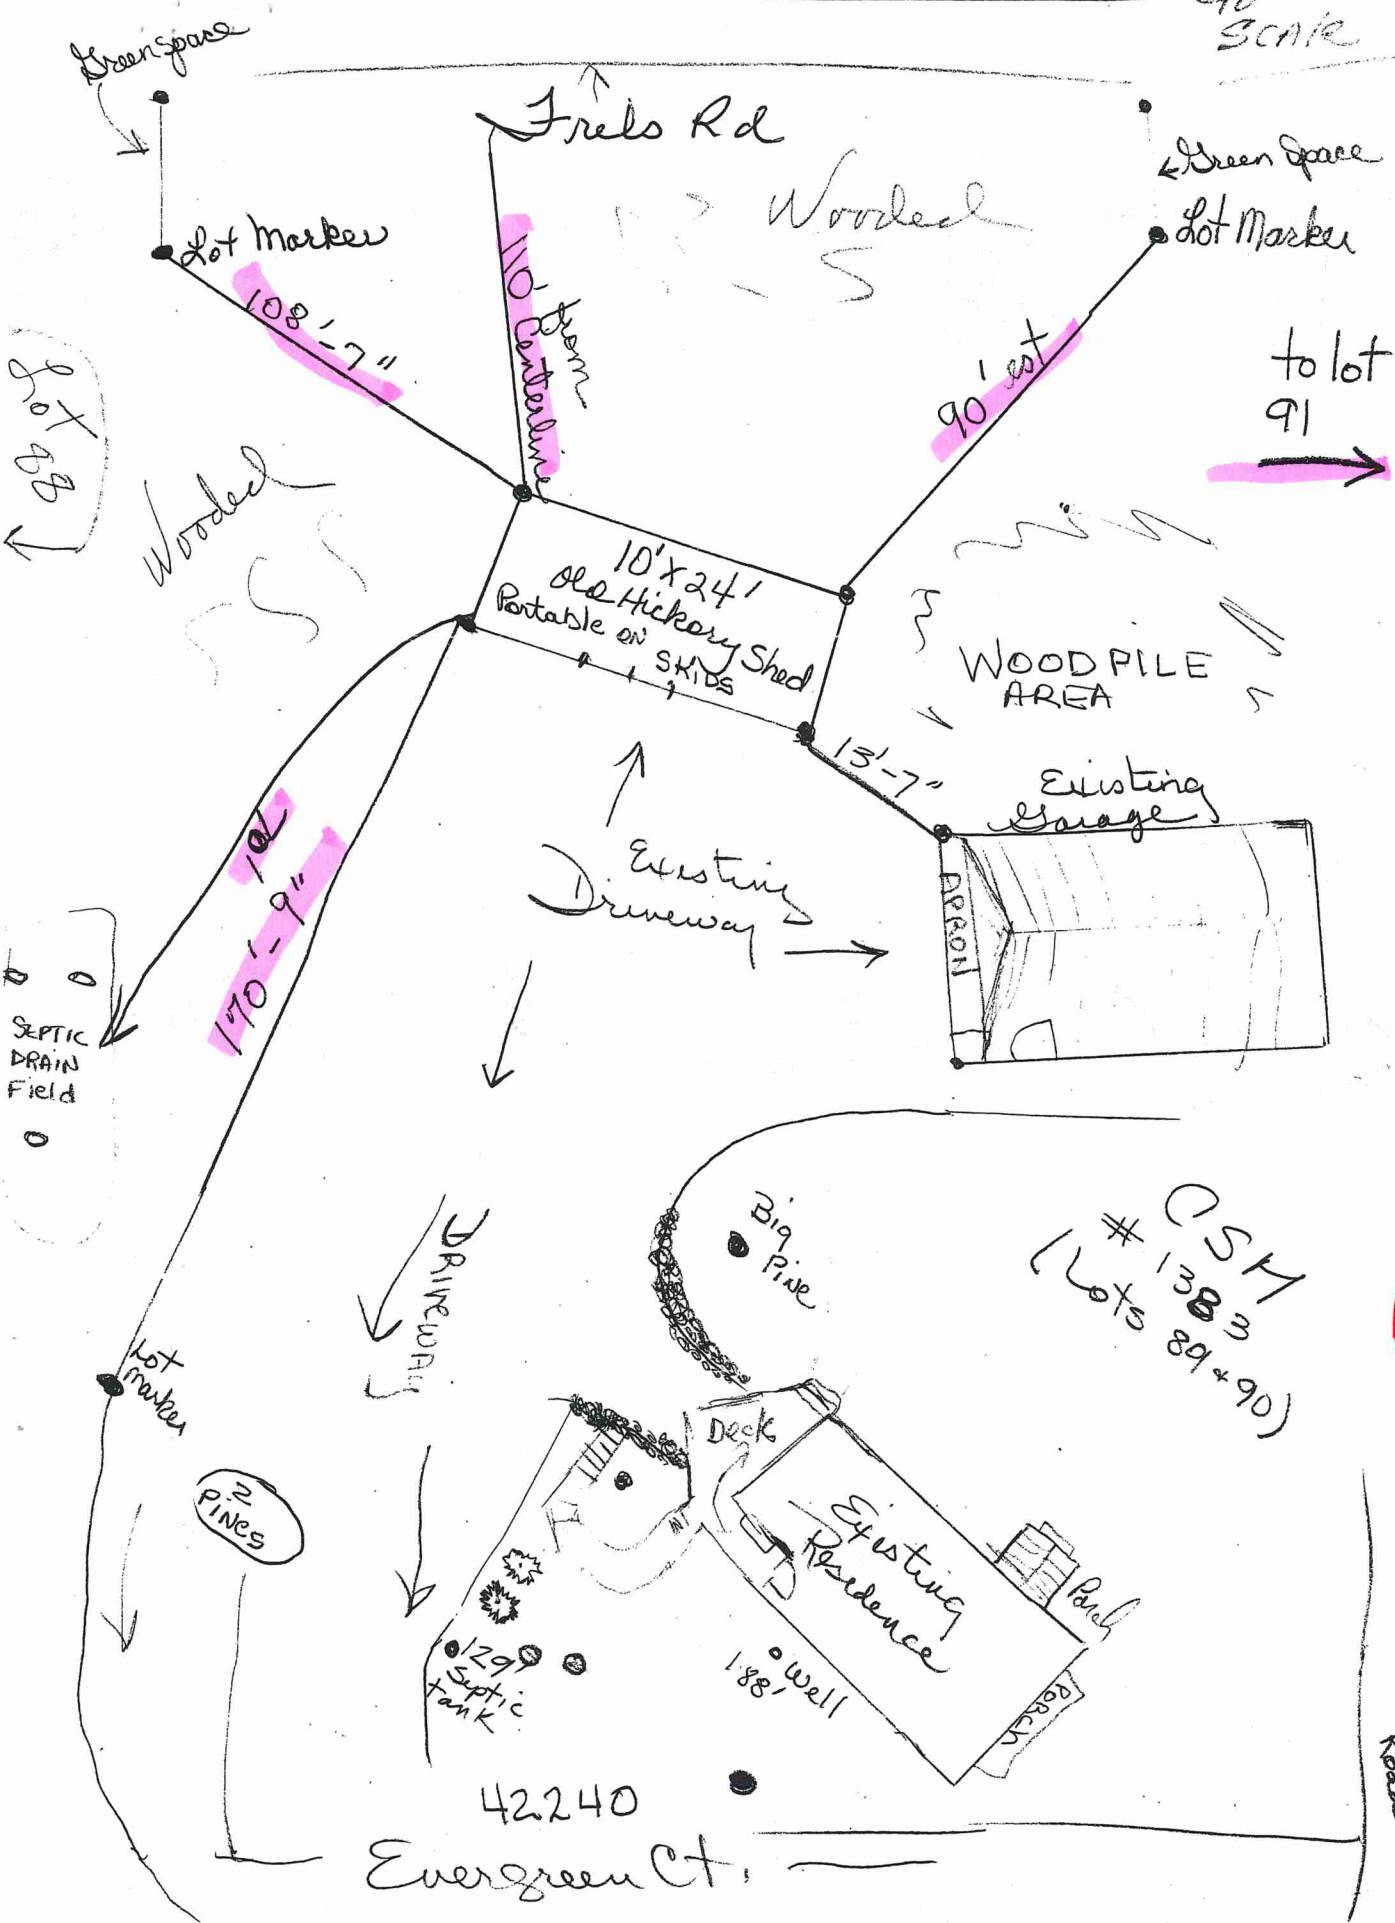 SCAlE
Green Space
Frels Rd
Green Space
Wooded
Lot Marker
Lot Marker
108'-7"
110' from
Centerline
90' est
to lot
91
Lot
88
Wooded
10' X 24'
Old Hickory Shed
Portable ON
SKIDS
WOODPILE
AREA
13'-7"
Existing
Garage
APRON
Existing
Driveway
170'-9"
SEPTIC
DRAIN
Field
DRIVEWAY
Big
Pine
CSM
# 1383
(Lots 89 & 90)
Lot
marker
Deck
2
PINES
Existing
Residence
Porch
129'
Septic
tank
Well
188'
PORCH
Road
42240
Evergreen Ct.